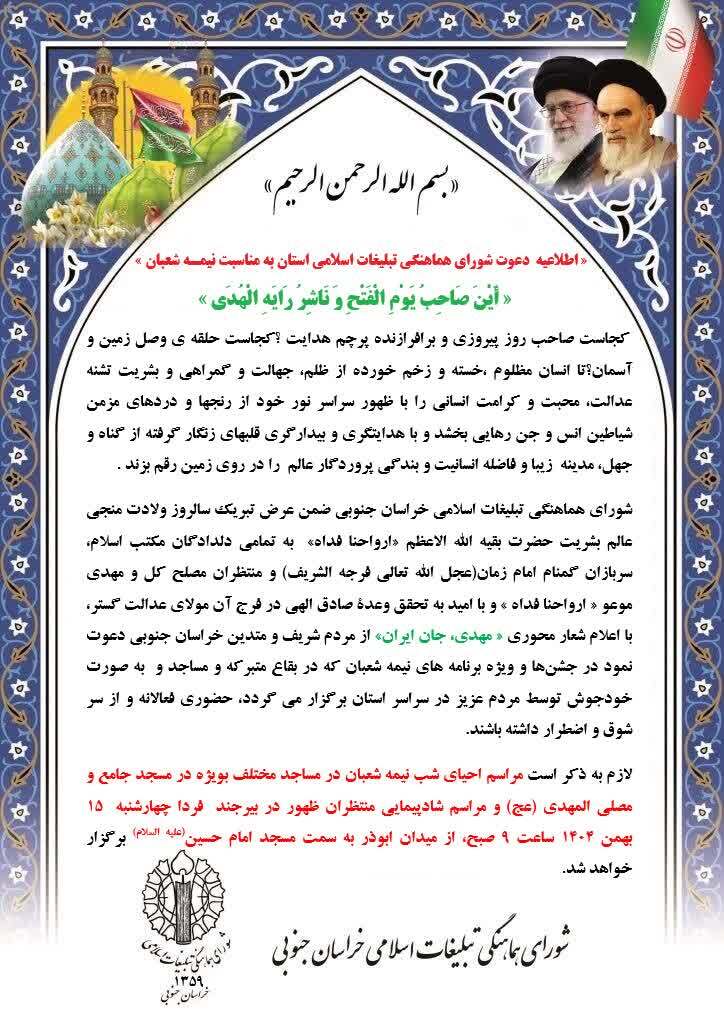 «بسم الله الرحمن الرحیم»
« اطلاعیه دعوت شورای هماهنگی تبلیغات اسلامی استان به مناسبت نیمــه شعبان »
« أَیْنَ صَاحِبُ یَوْمِ الْفَتْحِ وَ نَاشِرُ رَایَهِ الْهُدَی »
کجاست صاحب روز پیروزی و برافرازنده پرچم هدایت ؟کجاست حلقه ی وصل زمین و
آسمان؟تا انسان مظلوم ،خسته و زخم خورده از ظلم، جهالت و گمراهی و بشریت تشنه
عدالت، محبت و کرامت انسانی را با ظهور سراسر نور خود از رنجها و دردهای مزمن
شیاطین انس و جن رهایی بخشد و با هدایتگری و بیدارگری قلبهای زنگار گرفته از گناه و
جهل، مدینه زیبا و فاضله انسانیت و بندگی پروردگار عالم را در روی زمین رقم بزند .
شورای هماهنگی تبلیغات اسلامی خراسان جنوبی ضمن عرض تبریک سالروز ولادت منجی
عالم بشریت حضرت بقیه الله الاعظم «ارواحنا فداه» به تمامی دلدادگان مکتب اسلام،
سربازان گمنام امام زمان(عجل الله تعالی فرجه الشریف) و منتظران مصلح کل و مهدی
موعو « ارواحنا فداه » و با امید به تحقق وعدهٔ صادق الهی در فرج آن مولای عدالت گستر،
با اعلام شعار محوری « مهدی، جان ایران» از مردم شریف و متدین خراسان جنوبی دعوت
نمود در جشن‌ها و ویژه برنامه های نیمه شعبان که در بقاع متبرکه و مساجد و به صورت
خودجوش توسط مردم عزیز در سراسر استان برگزار می گردد، حضوری فعالانه و از سر
شوق و اضطرار داشته باشند.
لازم به ذکر است مراسم احیای شب نیمه شعبان در مساجد مختلف بویژه در مسجد جامع و
مصلی المهدی (عج) و مراسم شادپیمایی منتظران ظهور در بیرجند فردا چهارشنبه ۱۵
بهمن ۱۴۰۴ ساعت ۹ صبح، از میدان ابوذر به سمت مسجد امام حسین(علیه السلام) برگزار
خواهد شد.
شورای هماهنگی تبلیغات اسلامی خراسان جنوبی
شورای هماهنگی تبلیغات اسلامی
۱۳۵۹
خراسان جنوبی